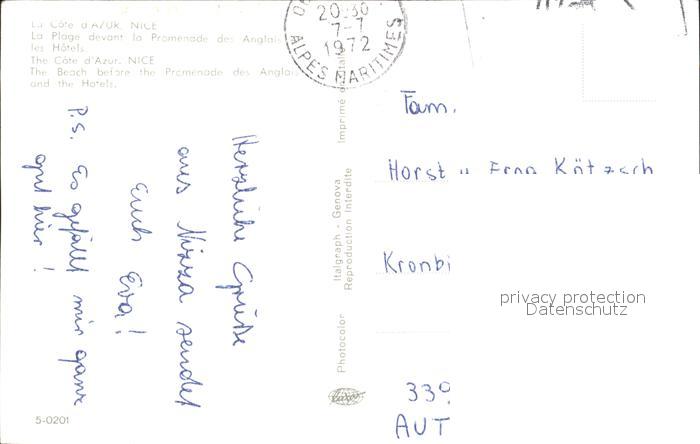 La Côte d'AZUR. NICE
La Plage devant la Promenade des Anglais
les Hôtels.
The Côte d'Azur. NICE
The Beach before the Promenade des Anglais
and the Hotels.
20:30
7-7
1972
ALPES MARITIMES
Herzliche Grüße
aus Nizza sendet
Euch Eva!
P.S. Es gefällt mir ganz
gut hier!
Photocolor Italgraph - Genova Imprimé
Reproduction Interdite
Fam.
Horst u
Kronbi
privacy protection
Datenschutz
339
AUT
5-0201